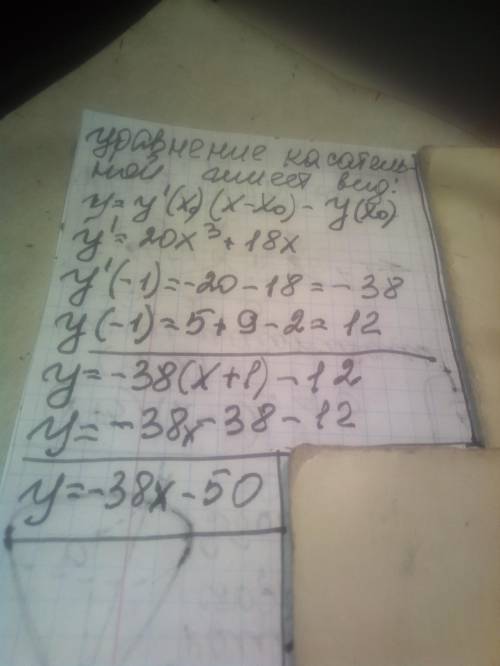 уравнение касатель-
ной имеет вид:
y = y'(x₀)(x-x₀) - y(x₀)
y' = 20x³ + 18x
y'(-1) = -20 - 18 = -38
y(-1) = 5 + 9 - 2 = 12
y = -38(x+1) - 12
y = -38x - 38 - 12
y = -38x - 50